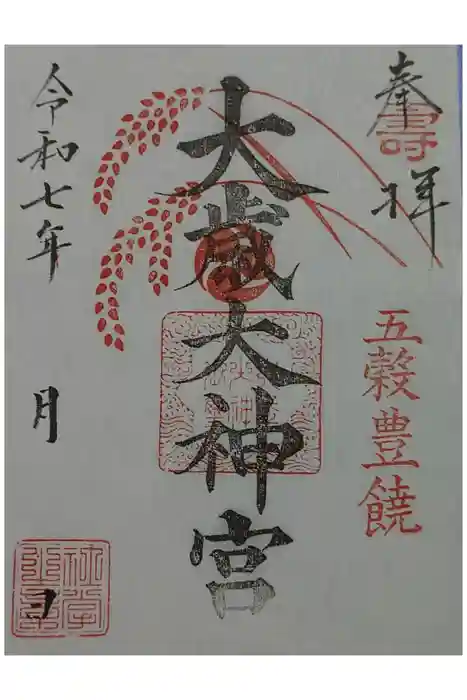 奉拝
壽
五穀豊饒
大歳大神宮
令和七年
月
日